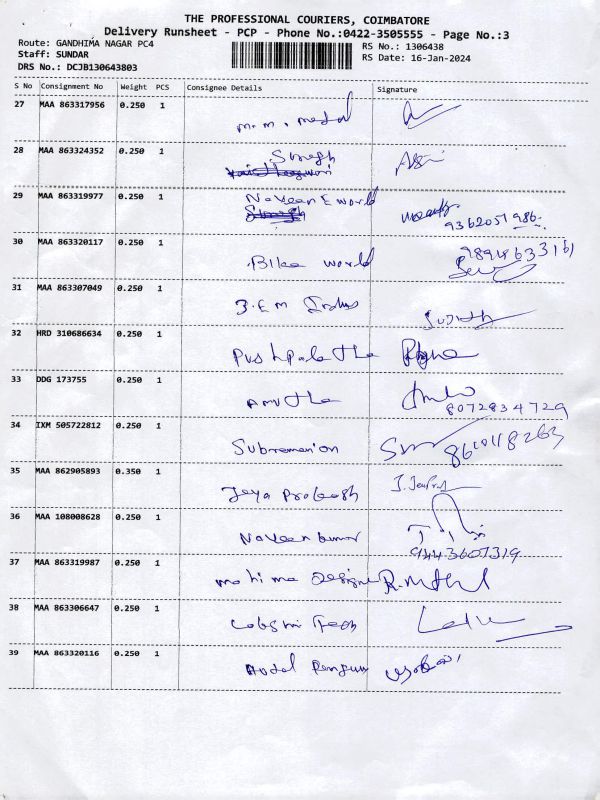 THE PROFESSIONAL COURIERS, COIMBATORE
Delivery Runsheet - PCP - Phone No.:0422-3505555 - Page No.:3
Route: GANDHIMA NAGAR PC4
RS No.: 1306438
Staff: SUNDAR
RS Date: 16-Jan-2024
DRS No.: DCJB130643803
S No Consignment No Weight PCS Consignee Details Signature
27 MAA 863317956 0.250 1
m.m. metal
28 MAA 863324352 0.250 1
29 MAA 863319977 0.250 1 Naveen E world
9362051986
30 MAA 863320117 0.250 1
Bike world
31 MAA 863307049 0.250 1
32 HRD 310686634 0.250 1
Pushpalatha
33 DDG 173755 0.250 1
Amutha
8072834729
34 IXM 505722812 0.250 1
Subramanion
35 MAA 862905893 0.350 1
Jeya Prakash
36 MAA 108008628 0.250 1
Naveen kumar
9443607319
37 MAA 863319987 0.250 1
mahima Designe
38 MAA 863306647 0.250 1
39 MAA 863320116 0.250 1
Hotel Penguin